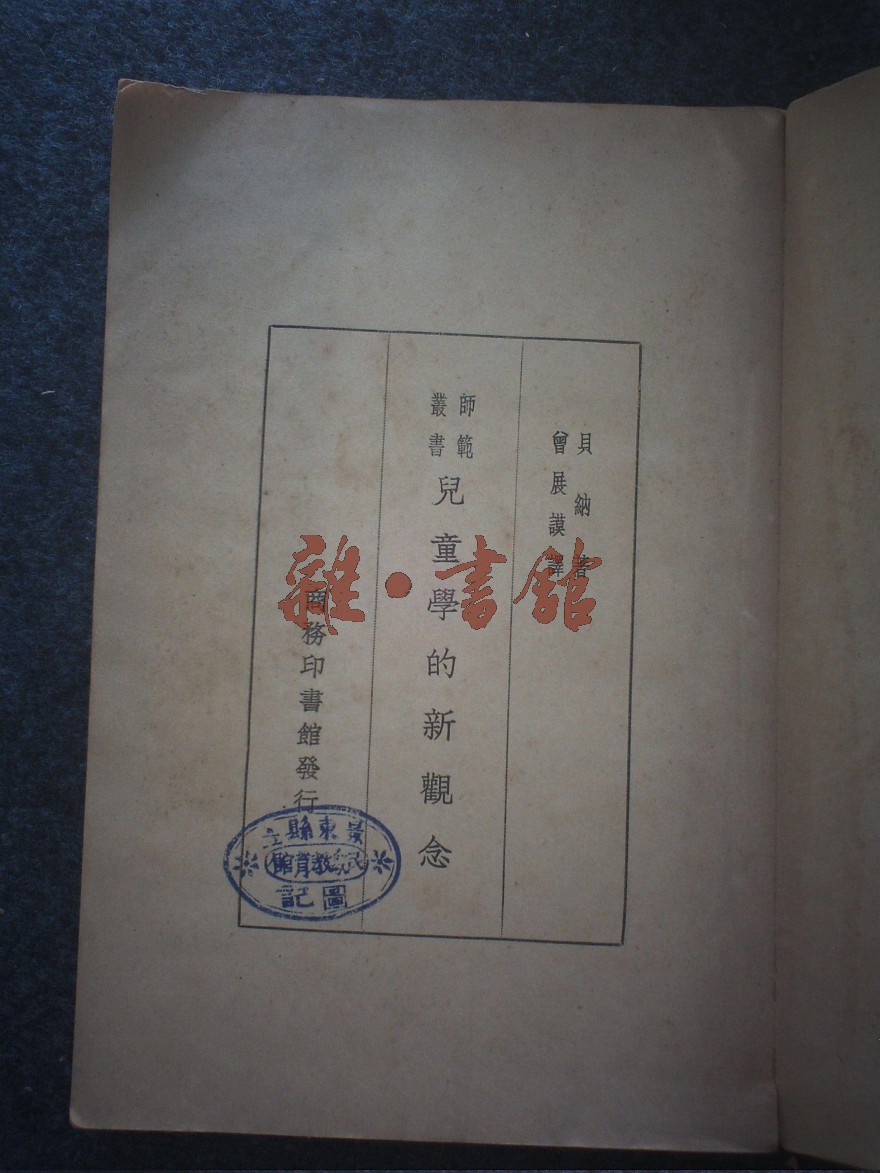 貝納著
曾展謨譯
師範
叢書
兒童學的新觀念
商務印書館發行
雜·書館
景東縣立
民眾教育館
圖記